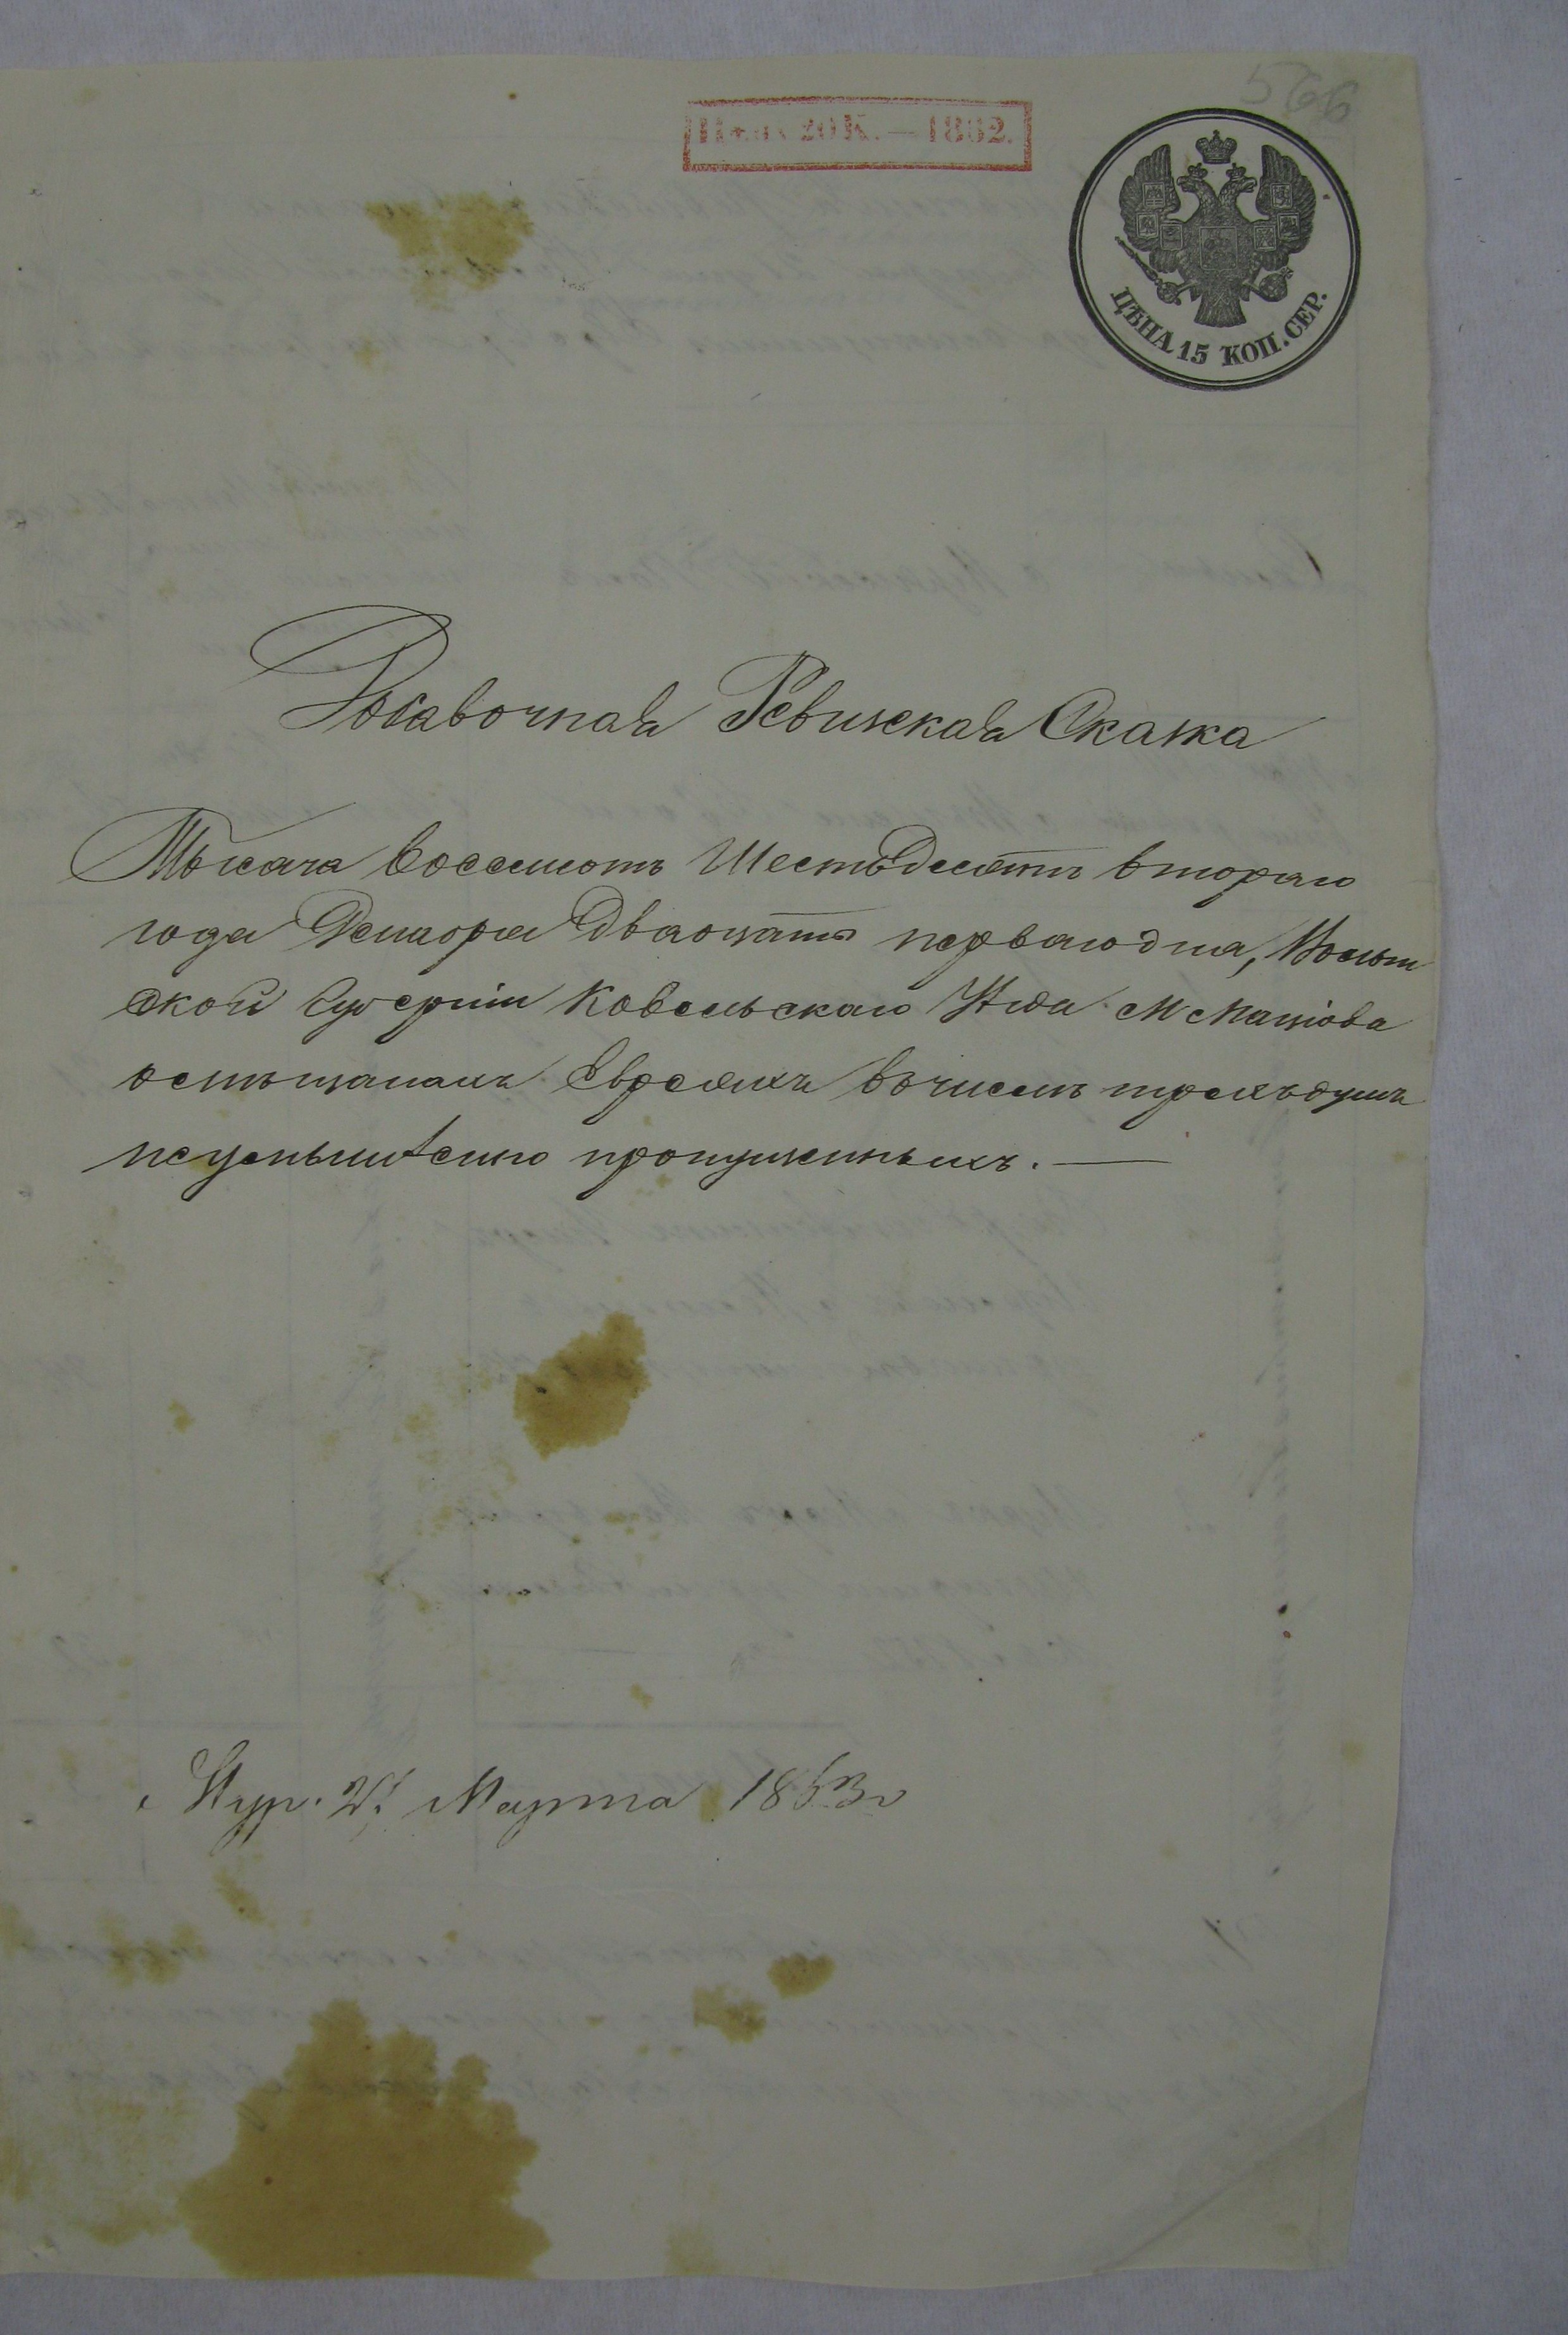 566
Цѣна 20 К. — 1862.
ЦѢНА 15 КОП. СЕР.
Добавочная Ревизская Сказка
Тысяча восемьсотъ Шестьдесятъ втораго
года Декабря Двадцать перваго дня, Волын
ской Губерніи Ковельскаго Уѣзда М Мацiова
о мѣщанахъ Евреяхъ въ числѣ трехъ душъ
неумышленно пропущенныхъ. —
Марта 1863 г